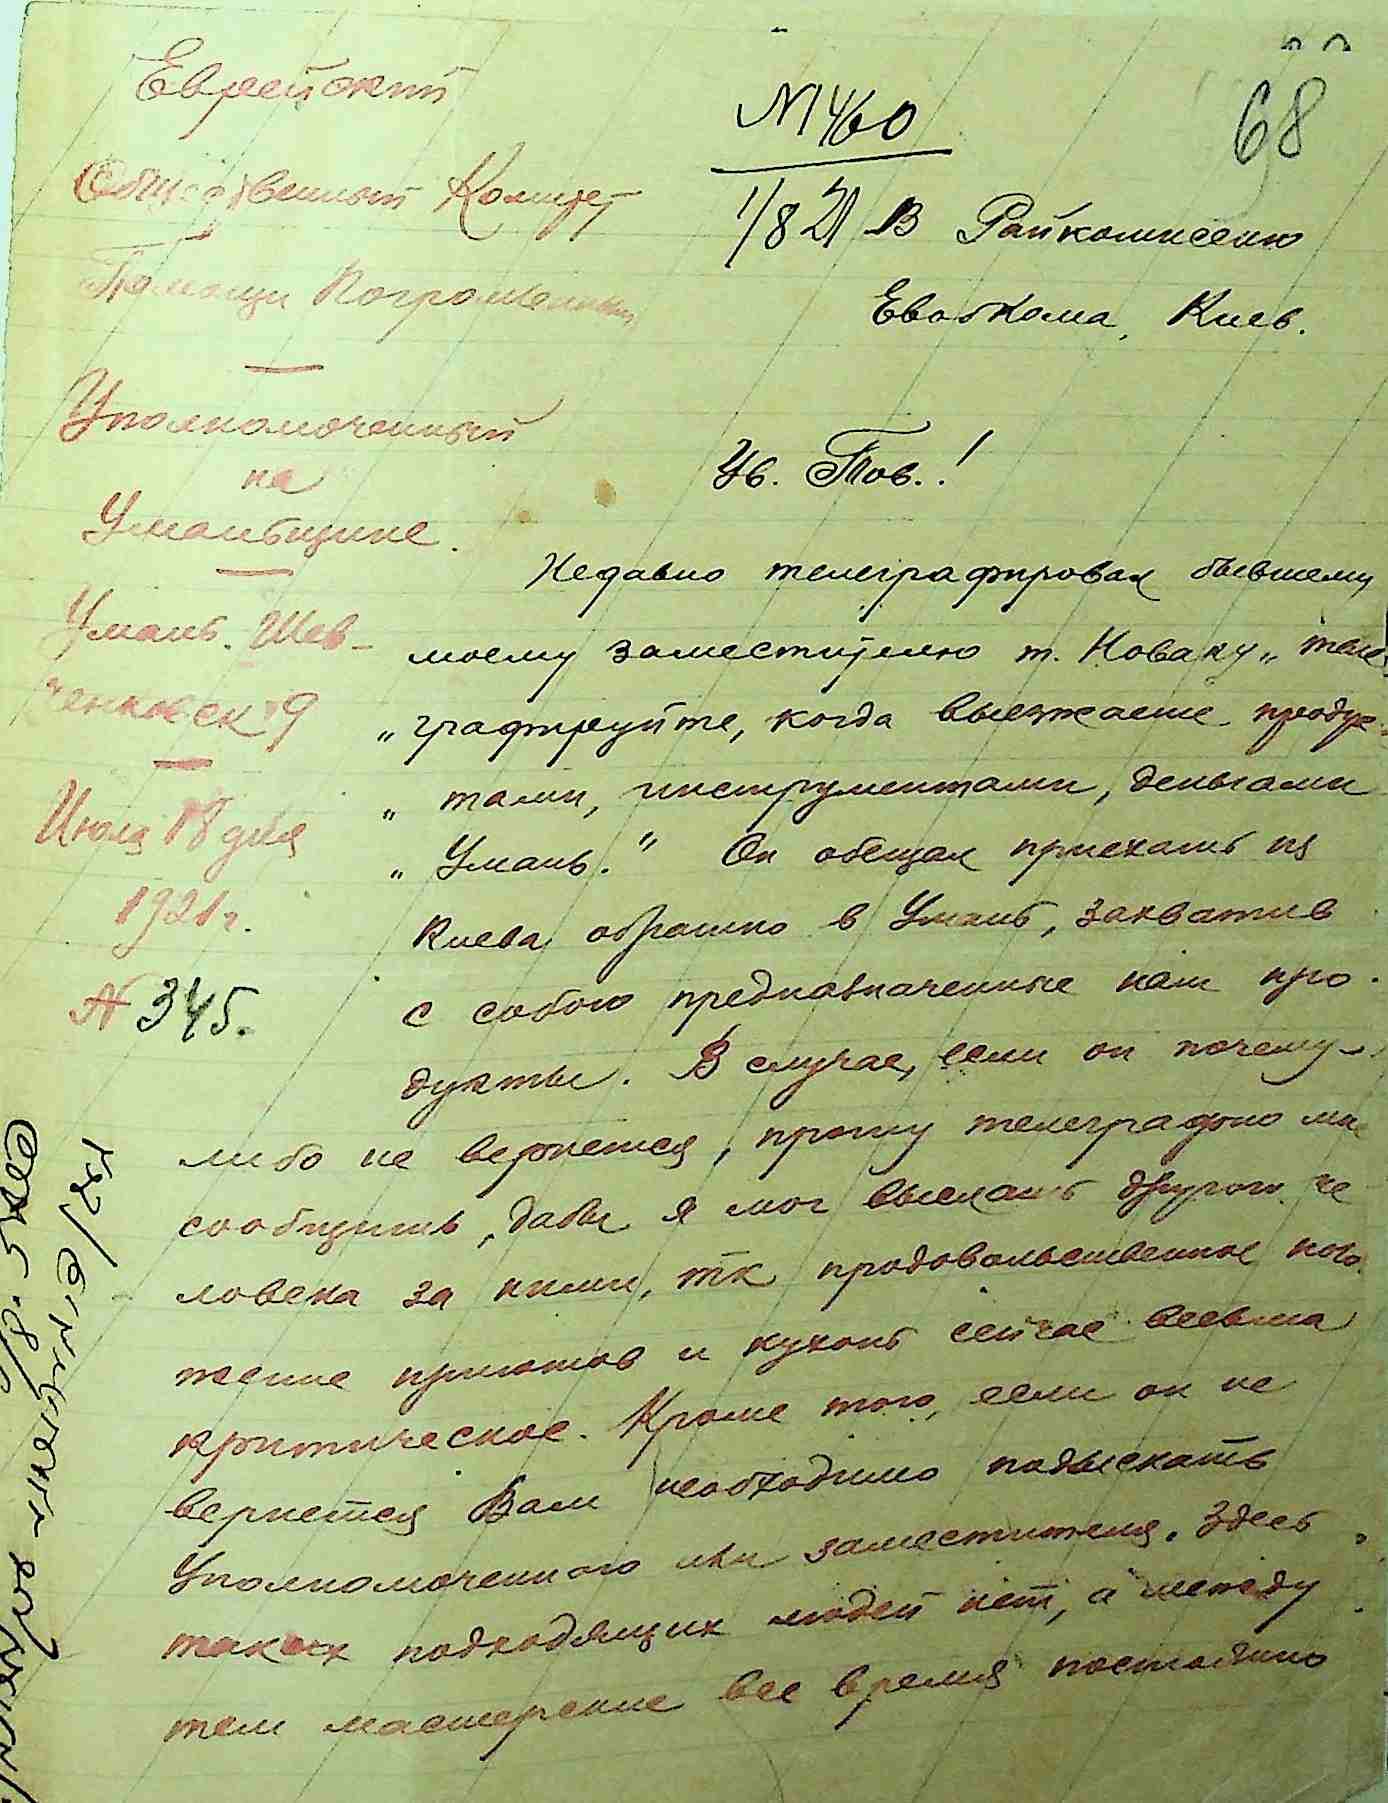 68
Еврейский
Общественный Комитет
Помощи Погромленным
Уполномоченный
на
Уманьщине.
Умань. Шев-
ченковск. 9
Июля 18 дня
1921 г.
№ 345.
№ 460
1/8 21
В Райкомиссию
Евобкома, Киев.
Ув. Тов.!
Недавно телеграфировал бывшему
моему заместителю т. Новаку „теле
„графируйте, когда выезжаете продук-
„тами, инструментами, деньгами
„Умань." Он обещал приехать из
Киева обратно в Умань, захватив
с собою предназначенные нам про-
дукты. В случае, если он почему-
либо не вернется, прошу телеграфно мне
сообщить, дабы я мог выслать другого че
ловека за ними, тк продовольственное поло
жение приютов и кухонь сейчас весьма
критическое. Кроме того, если он не
вернется Вам необходимо подыскать
Уполномоченного или заместителя. Здесь
таких подходящих людей нет, а между
тем мастерские все время постоянно